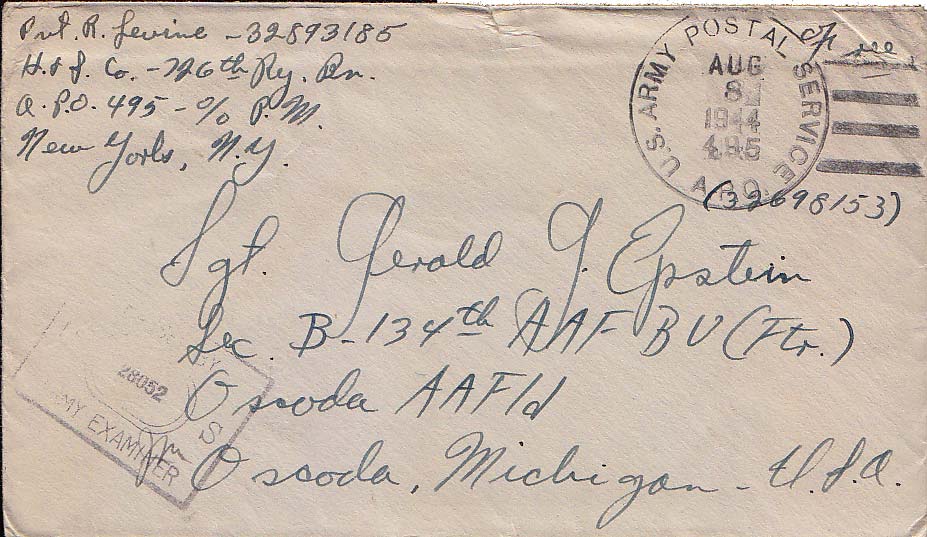 Pvt. R. Levine - 32893185
H. & S. Co. - 726th Ry. Bn.
A.P.O. 495 - c/o P.M.
New York, N.Y.
Free
U.S. ARMY POSTAL SERVICE
AUG
8
1944
495
A.P.O.
(32698153)
Sgt. Gerald J. Epstein
Sec. B - 134th AAF BU (Ftr.)
Oscoda AAFld
Oscoda, Michigan - U.S.A.
BY
28052
S
ARMY EXAMINER